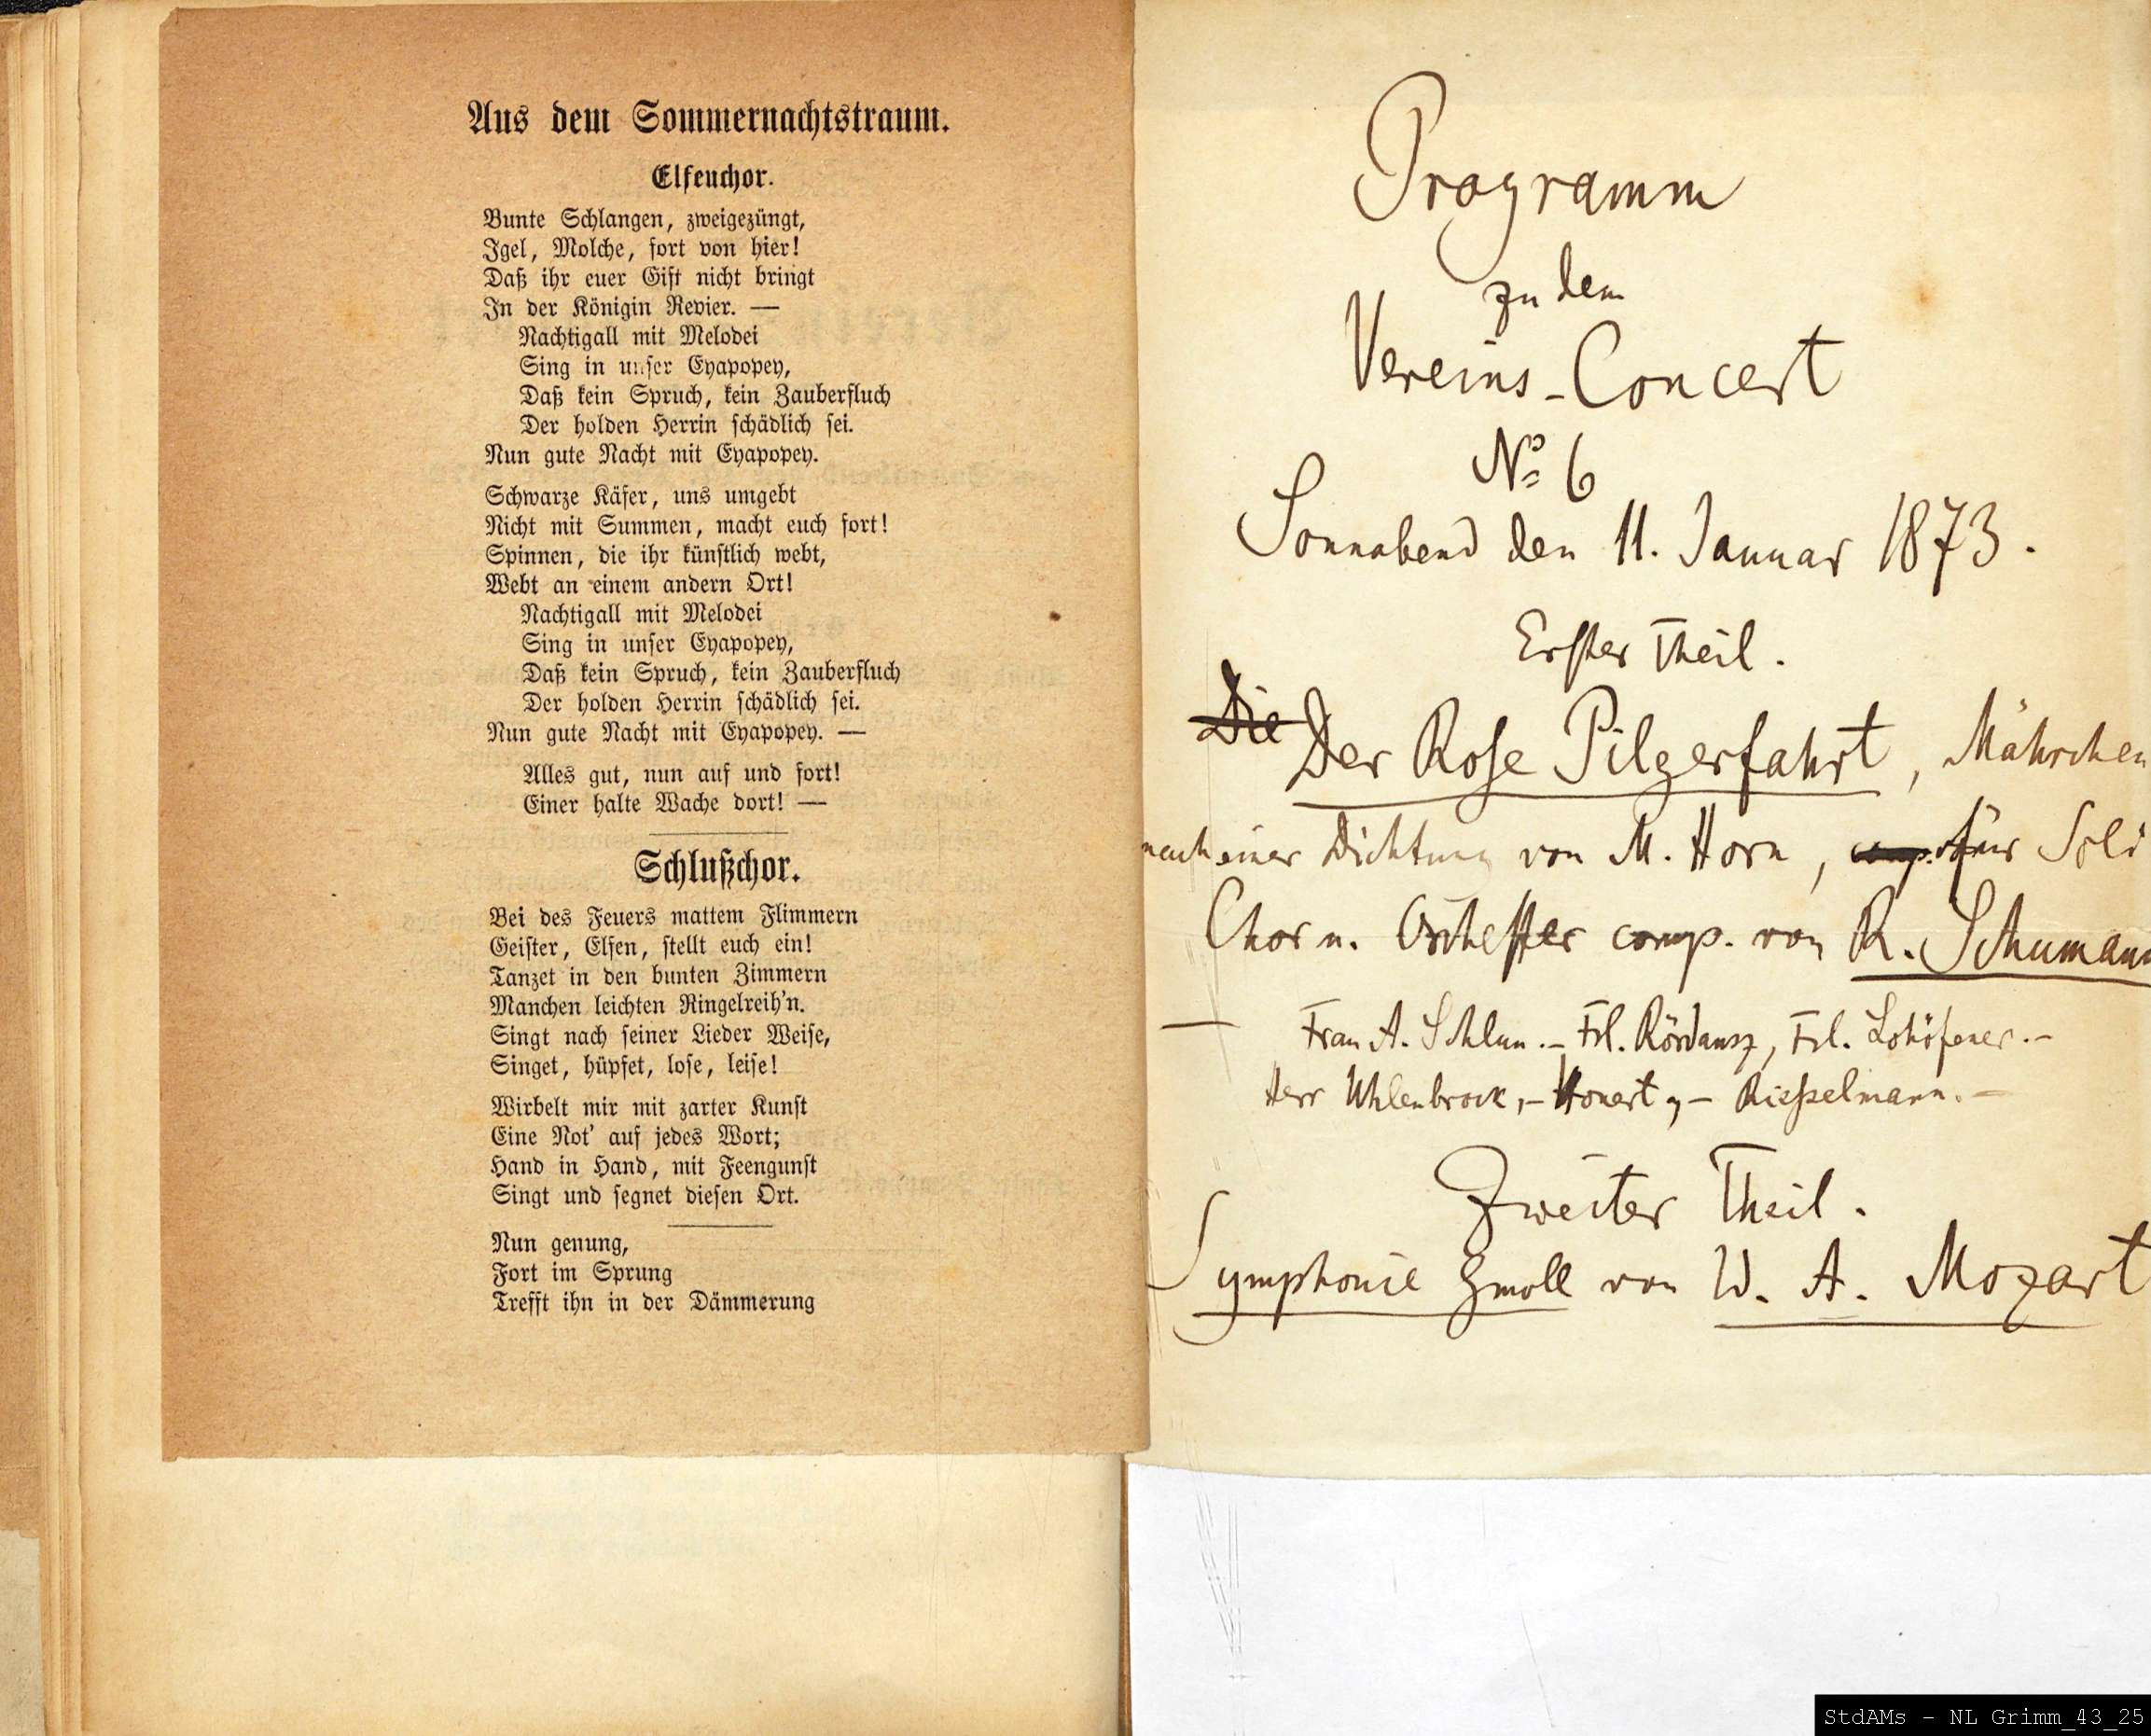 Aus dem Sommernachtstraum.
Elfenchor.
Bunte Schlangen, zweigezüngt,
Igel, Molche, fort von hier!
Daß ihr euer Gift nicht bringt
In der Königin Revier. —
Nachtigall mit Melodei
Sing in unser Eyapopey,
Daß kein Spruch, kein Zauberfluch
Der holden Herrin schädlich sei.
Nun gute Nacht mit Eyapopey.
Schwarze Käfer, uns umgebt
Nicht mit Summen, macht euch fort!
Spinnen, die ihr künstlich webt,
Webt an einem andern Ort!
Nachtigall mit Melodei
Sing in unser Eyapopey,
Daß kein Spruch, kein Zauberfluch
Der holden Herrin schädlich sei.
Nun gute Nacht mit Eyapopey. —
Alles gut, nun auf und fort!
Einer halte Wache dort! —
Schlußchor.
Bei des Feuers mattem Flimmern
Geister, Elfen, stellt euch ein!
Tanzet in den bunten Zimmern
Manchen leichten Ringelreih'n.
Singt nach seiner Lieder Weise,
Singet, hüpfet, lose, leise!
Wirbelt mir mit zarter Kunst
Eine Not' auf jedes Wort;
Hand in Hand, mit Feengunst
Singt und segnet diesen Ort.
Nun genung,
Fort im Sprung
Trefft ihn in der Dämmerung
Programm
zu dem
Vereins-Concert
No 6
Sonnabend den 11. Januar 1873.
Erster Theil.
Die Der Rose Pilgerfahrt, Mährchen
nach einer Dichtung von M. Horn, comp. für Soli
Chor u. Orchester comp. von R. Schumann
Frau A. Schlun. – Frl. Rördansz, Frl. Lohöfener. –
Herr Uhlenbrock, – Honert, – Riesselmann. –
Zweiter Theil.
Symphonie Gmoll von W. A. Mozart
StdAMs - NL Grimm_43_25